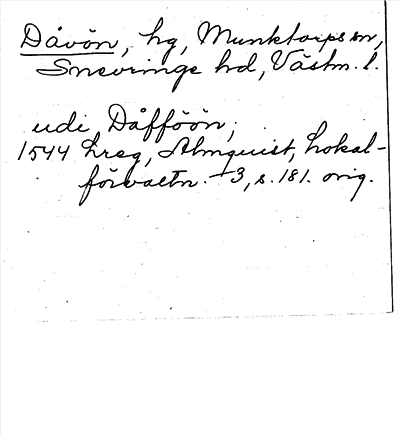 Dåvön, hg, Munktorps sn,
Snevringe hd, Västm. l.
udi Dåfföön,
1544 hreg, Almquist, Lokal-
förvaltn. 3, s. 181. orig.